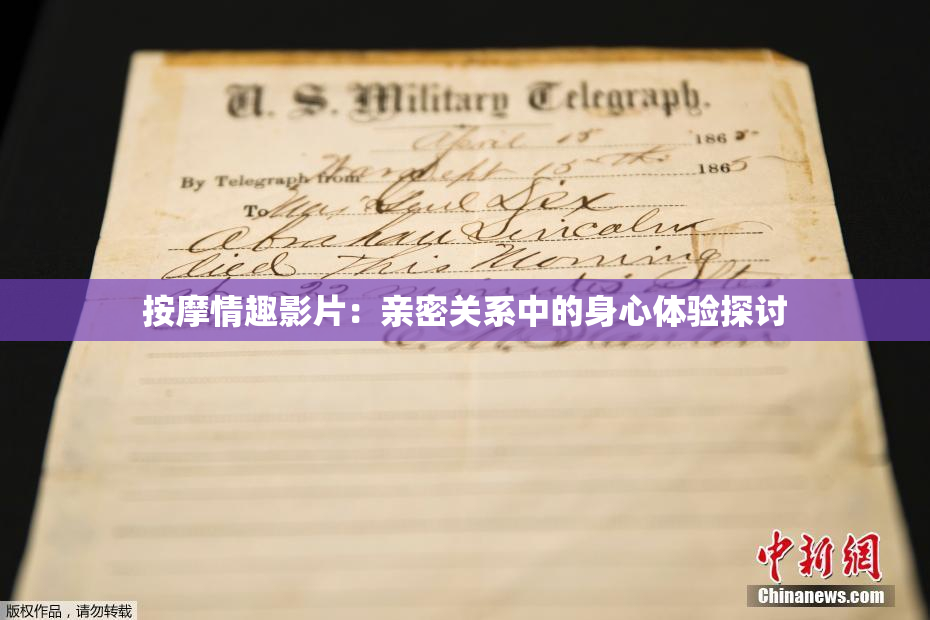 U. S. Military Telegraph.
April 15 1865
By Telegraph from War Dept 15th 1865
To Maj Genl Dix
Abraham Lincoln
died This Morning
22 minutes after
按摩情趣影片：亲密关系中的身心体验探讨
中新網
Chinanews.com
版权作品，请勿转载